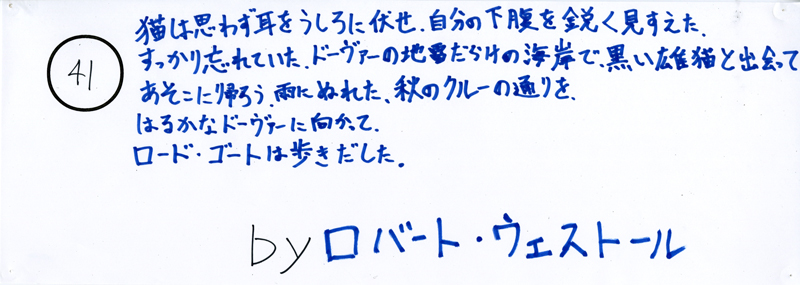 41
猫は思わず耳をうしろに伏せ、自分の下腹を鋭く見すえた。
すっかり忘れていた。ドーヴァーの地雷だらけの海岸で、黒い雄猫と出会って
あそこに帰ろう。雨にぬれた、秋のクルーの通りを、
はるかなドーヴァーに向かって、
ロード・ゴートは歩きだした。
by ロバート・ウェストール